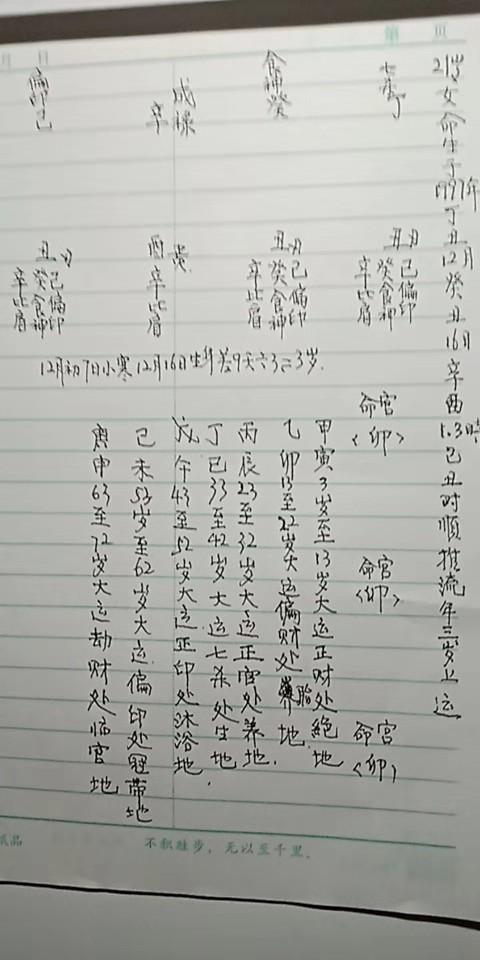 第 页
月 日
21岁女命生于1997年丁丑12月癸丑16日辛酉1.3時己丑时順推流年三岁上运
七杀丁
食神癸
戌禄
辛
偏印己
丑月
己偏印
癸食神
辛比肩
丑月
己偏印
癸食神
辛比肩
酉
辛比肩
丑月
己偏印
癸食神
辛比肩
12月初7日小寒12月16日生年差9天六3=3岁.
命宫<卯>
命宫<卯>
命宫<卯>
甲寅3岁至13岁大运正财处絶地
乙卯13至22岁大运偏财处胎地.
丙辰23至32岁大运正官处养地.
丁巳33至42岁大运七杀处生地.
戊午43至52岁大运正印处沐浴地
己未53岁至62岁大运偏印处冠带地
庚申63至72岁大运劫财处临官地
纸品
不积跬步，无以至千里。